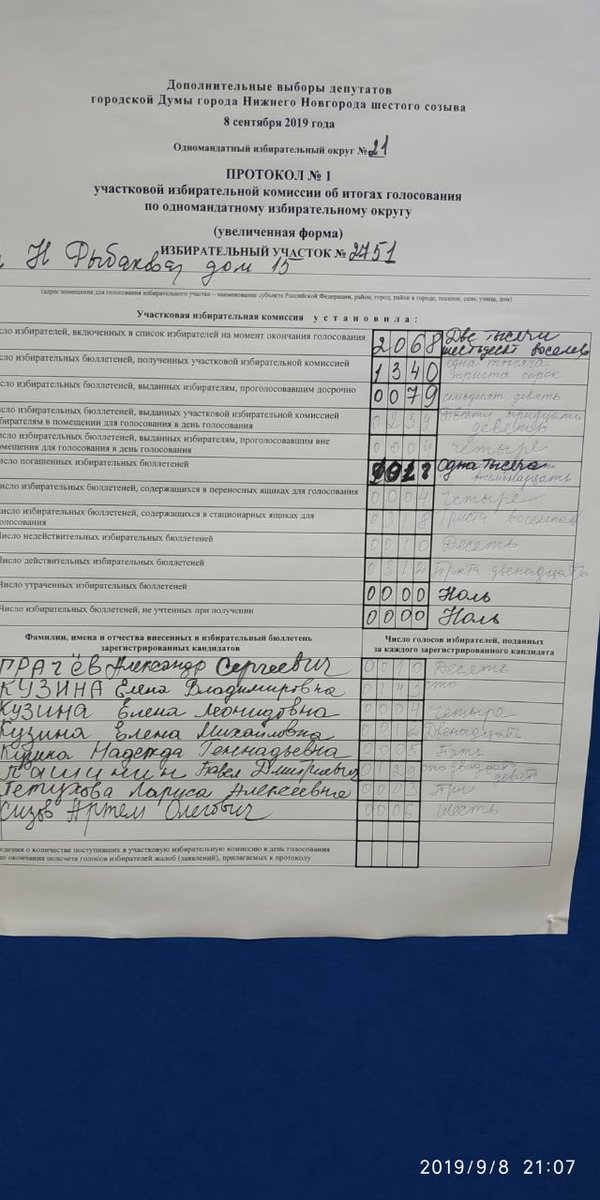 Дополнительные выборы депутатов
городской Думы города Нижнего Новгорода шестого созыва
8 сентября 2019 года
Одномандатный избирательный округ № 21
ПРОТОКОЛ № 1
участковой избирательной комиссии об итогах голосования
по одномандатному избирательному округу
(увеличенная форма)
ИЗБИРАТЕЛЬНЫЙ УЧАСТОК № 2751
Н Рыбакова, дом 15
(адрес помещения для голосования избирательного участка – наименование субъекта Российской Федерации, район, город, район в городе, поселок, село, улица, дом)
Участковая избирательная комиссия установила:
сло избирателей, включенных в список избирателей на момент окончания голосования 2068 Две тысячи шестьдесят восемь
сло избирательных бюллетеней, полученных участковой избирательной комиссией 1340 одна тысяча триста сорок
сло избирательных бюллетеней, выданных избирателям, проголосовавшим досрочно 0079 семьдесят девять
сло избирательных бюллетеней, выданных участковой избирательной комиссией
бирателям в помещении для голосования в день голосования 0239 двести тридцать девять
сло избирательных бюллетеней, выданных избирателям, проголосовавшим вне
мещения для голосования в день голосования 0004 четыре
сло погашенных избирательных бюллетеней 1018 одна тысяча восемнадцать
сло избирательных бюллетеней, содержащихся в переносных ящиках для голосования 0004 Четыре
исло избирательных бюллетеней, содержащихся в стационарных ящиках для
олосования 0318 триста восемнад
исло недействительных избирательных бюллетеней 0010 Десять
Число действительных избирательных бюллетеней 0312 триста двенадцать
Число утраченных избирательных бюллетеней 0000 Ноль
Число избирательных бюллетеней, не учтенных при получении 0000 Ноль
Фамилии, имена и отчества внесенных в избирательный бюллетень
зарегистрированных кандидатов
Число голосов избирателей, поданных
за каждого зарегистрированного кандидата
ПРАЧЁВ Александр Сергеевич 0010 Десять
КУЗИНА Елена Владимировна 0143 сто
КУЗИНА Елена Леонидовна 0004 четыре
Кузина Елена Михайловна 0012 Двенадцать
Надежда Геннадьевна 0005 Пять
Пашинин Павел Дмитриевич 0129 сто двадцать девять
Петухова Лариса Алексеевна 0003 Три
Сизов Артем Олегович 0006 шесть
едения о количестве поступивших в участковую избирательную комиссию в день голосования
до окончания подсчета голосов избирателей жалоб (заявлений), прилагаемых к протоколу
2019/9/8 21:07